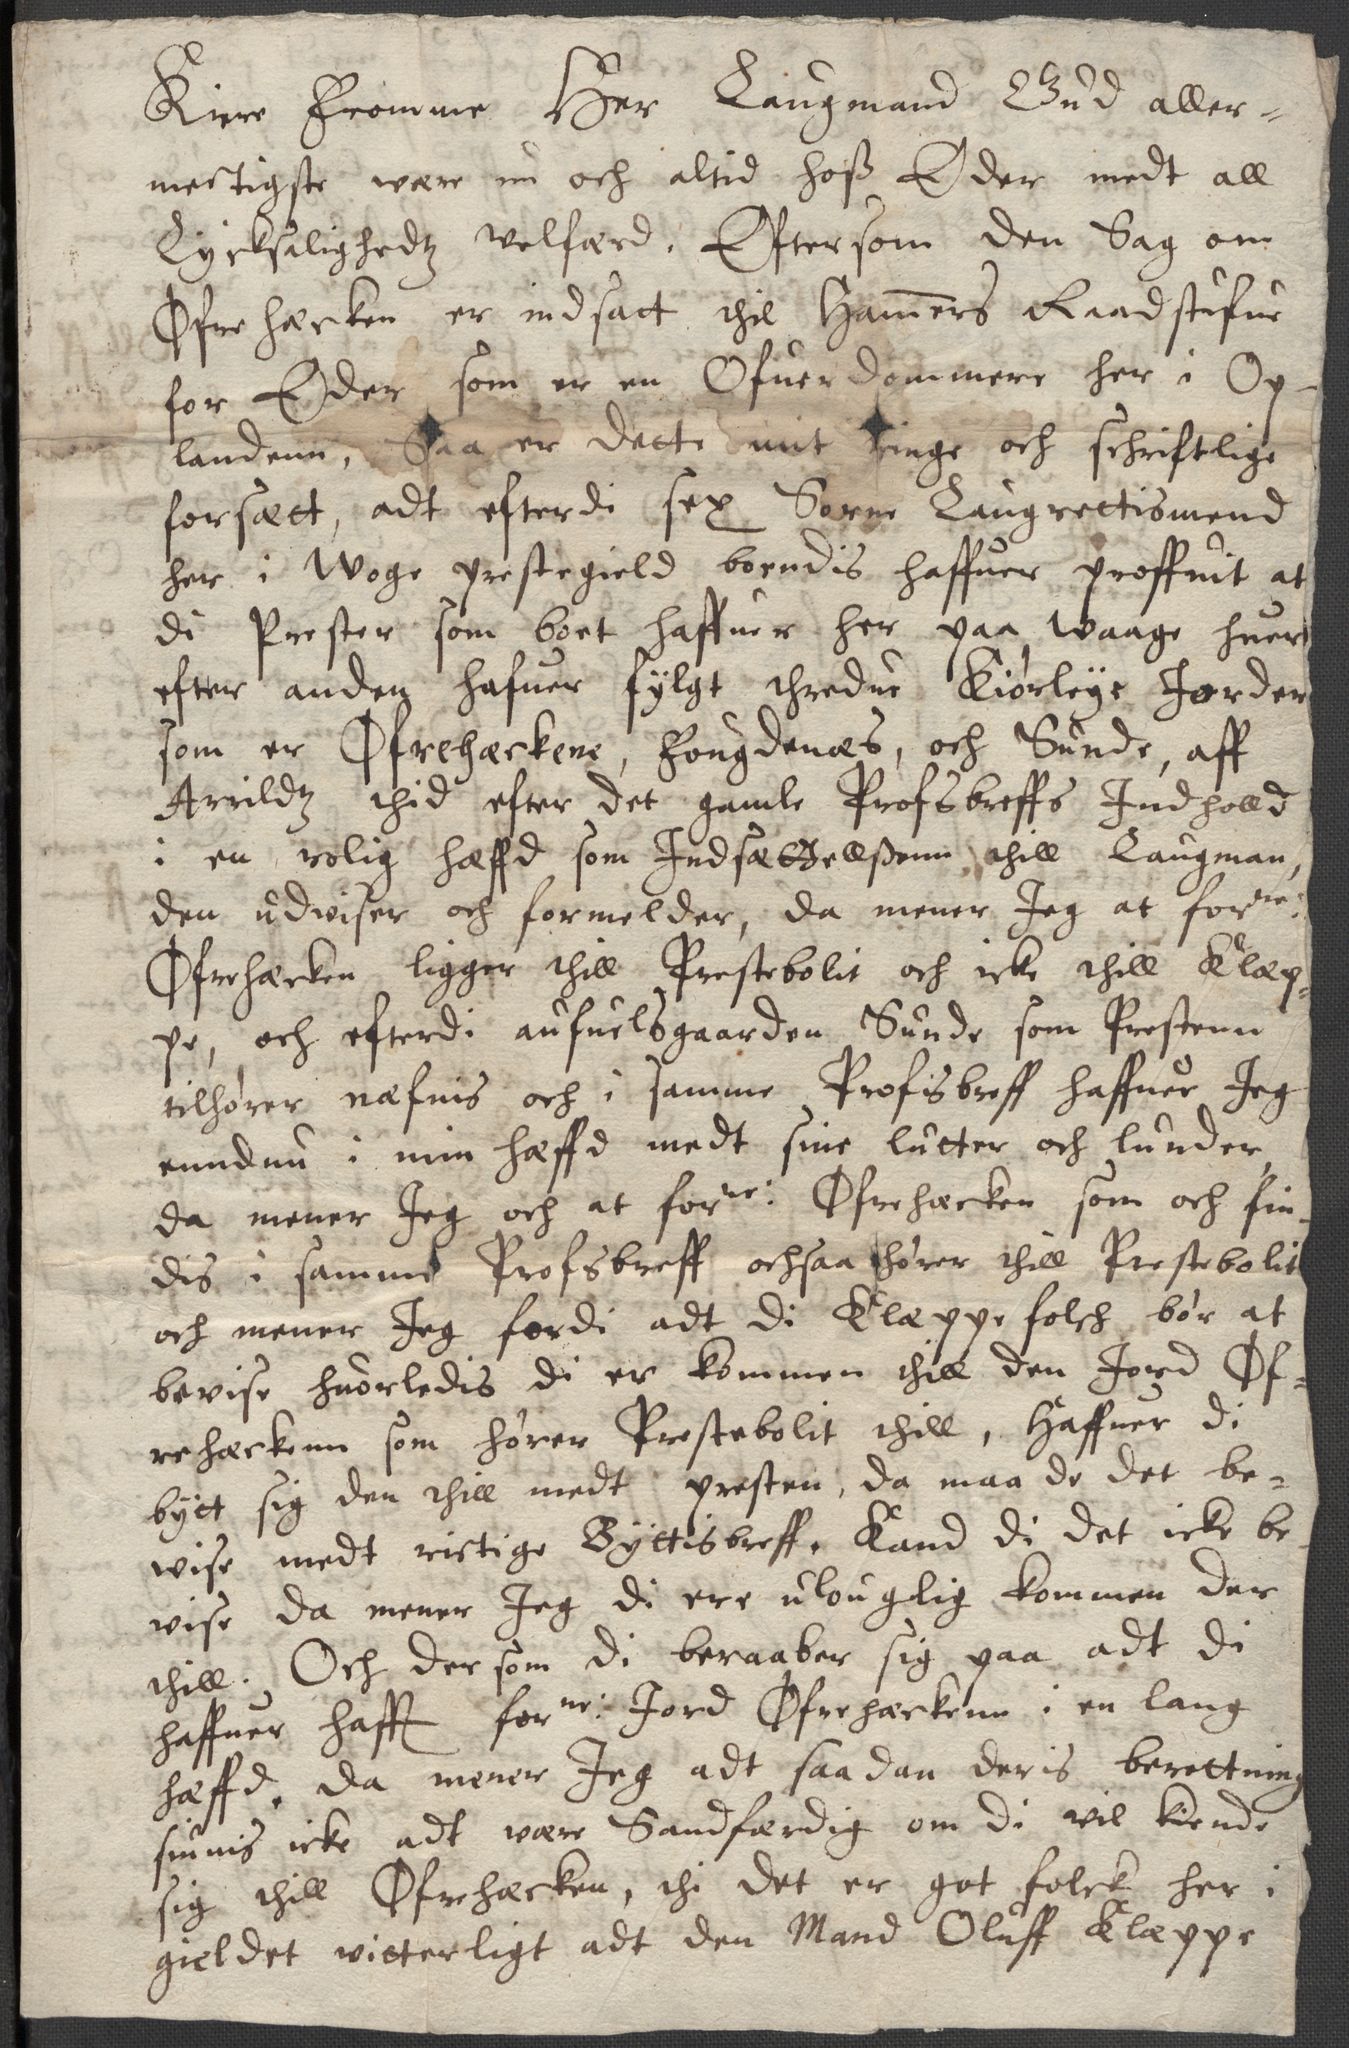 Kiere Fromme Her Laugmand Gud aller-
mectigste were nu och altid hoß Eder medt all
Lycksalighedtz velfærd. Eftersom den Sag om
Øfrehæcken er indsatt thil Ham̄ers Raadstufue
for Eder som er en Ofuerdommere her i Op-
landenn, Saa er dette mit ringe och schriftlige
forsætt, adt efterdi sex Sorne Laugrettismend
her i Woge prestegield boendis haffuer proffuit at
di Prester som boet haffuer her paa Waage huer
efter anden hafuer fylgt thredue Kiørleye Jorder
som er Øfrehæckene, Fougdenæs, och Sunde, aff
Arrildtz thid efter det gamle Profsbreffs Indholld
i en rolig hæffd som Indsættellßenn thill Laugman,
den udviser och formelder, da mener Jeg at forne:
Øfrehæcken ligger thill Prestebolit och icke thill Klæp-
pe, och efterdi aufuelsgaarden Sunde som Prestenn
tilhører næfnis och i samme Profisbreff haffuer Jeg
enndnu i min hæffd medt sine lutter och lunder,
da mener Jeg och at forne: Øfrehæcken som och fin-
dis i samme Profsbreff ochsaa hører thill Prestebolit
och mener Jeg fordi adt di Klæppe folch bør at
bevise huorledis di er kommen thill den Jord Øf-
rehæckenn som hører Prestebolit thill, Haffuer di
bytt sig den thill medt presten, da maa de det be-
wise medt rictige Byttisbreff. Kand di det icke be-
vise da mener Jeg di ere ulouglig kommen der
thill. Och dersom di beraaber sig paa adt di
haffuer hafft forne: Jord Øfrehæckenn i en lang
hæffd, da mener Jeg adt saadan deris berettning
siunis icke adt være Sandfærdig om di vil kiende
sig thill Øfrehæcken, thi det er got folck her i
gieldet vitterligt adt den Mand Oluff Klæppe